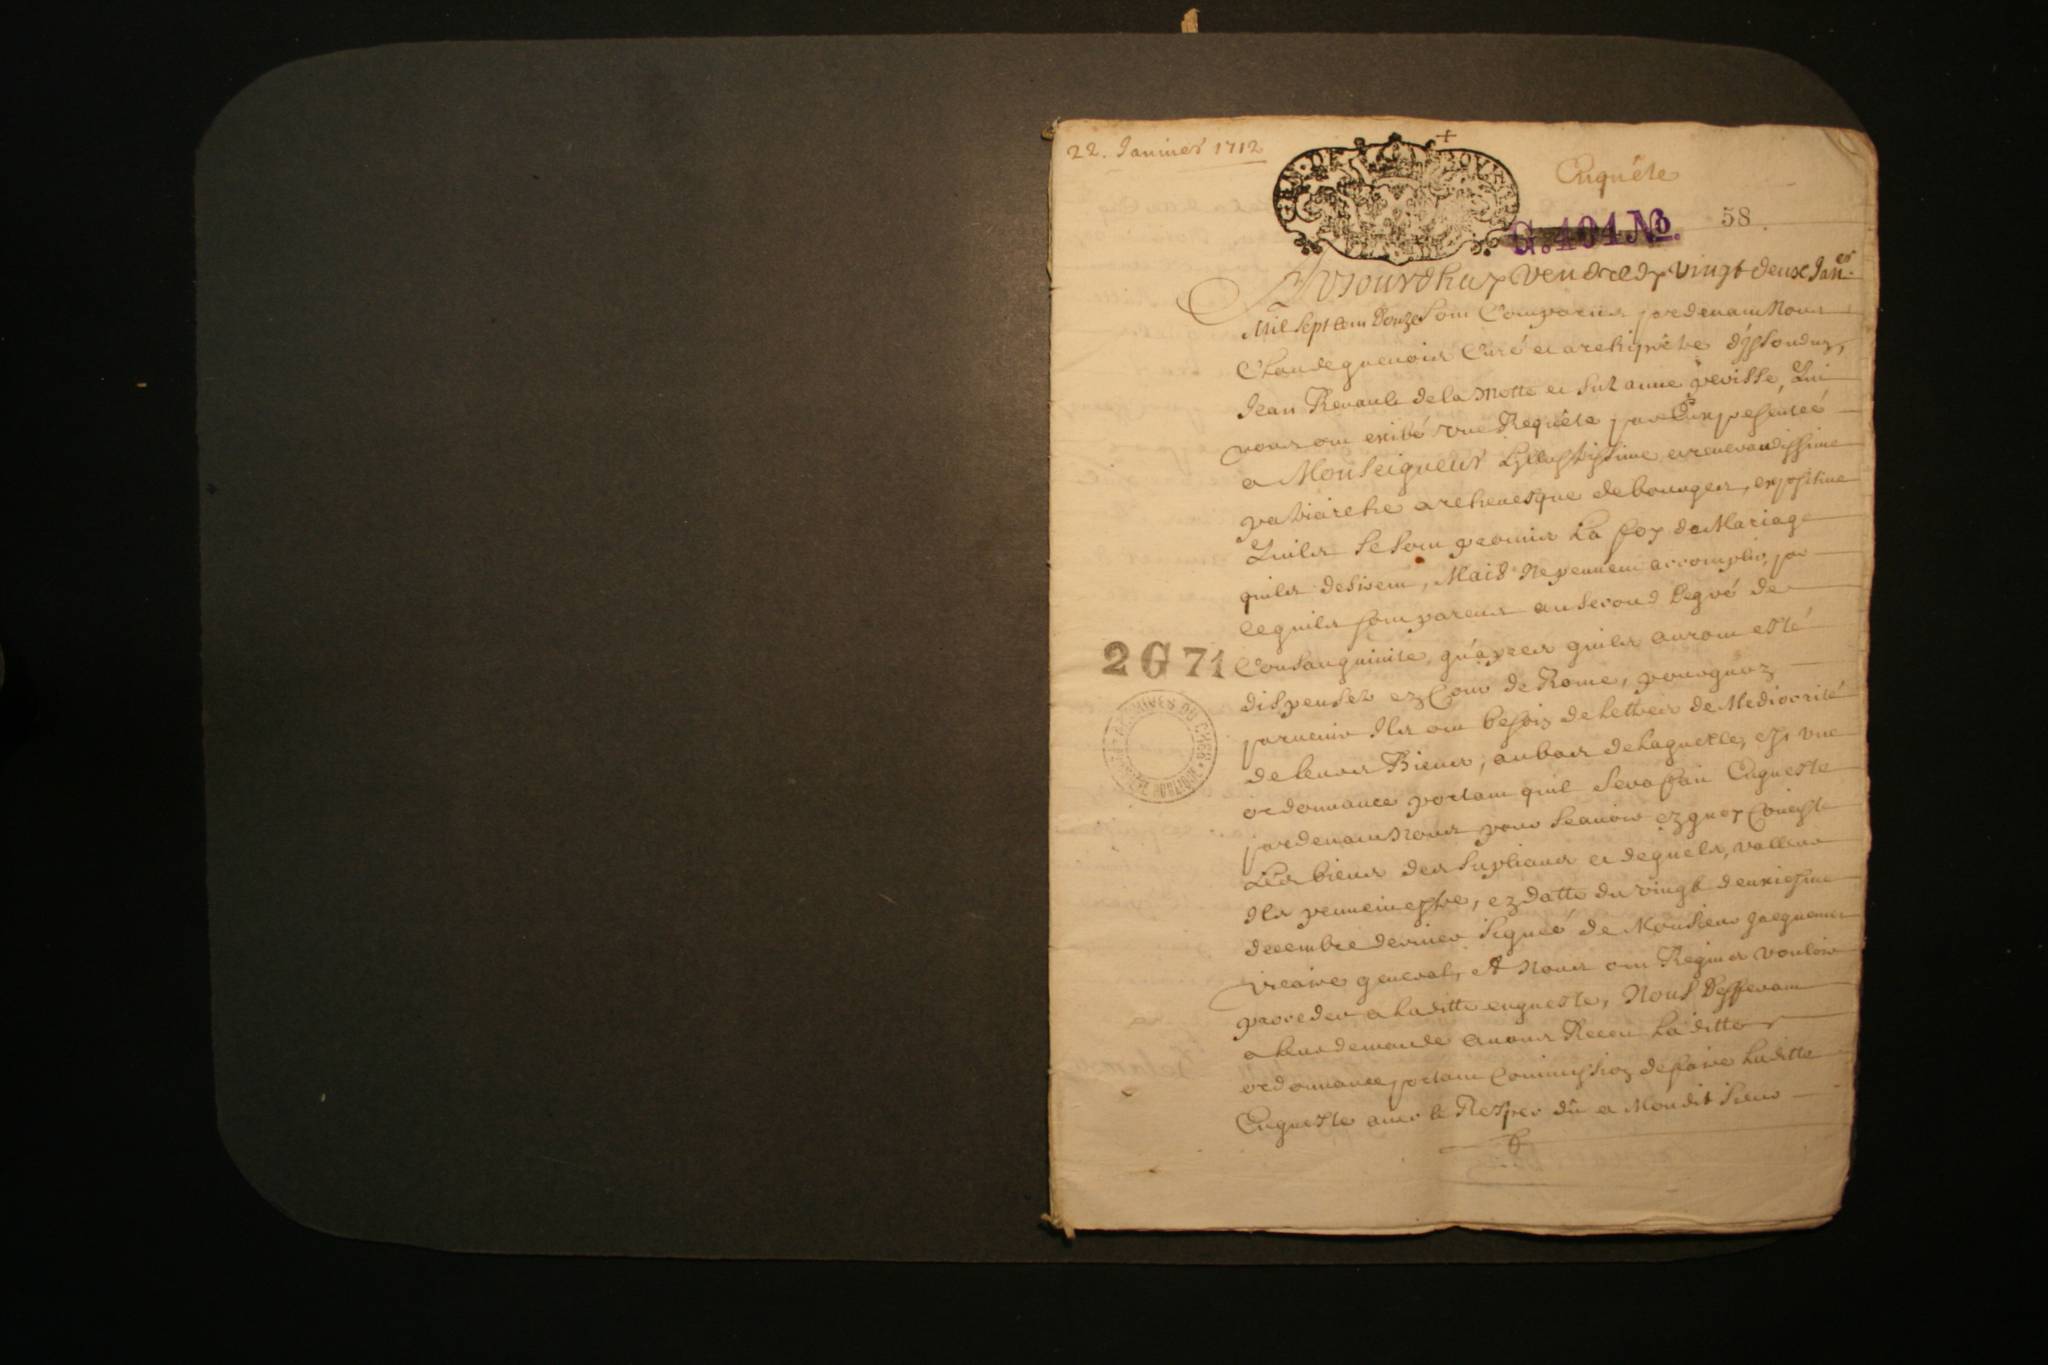 22. Janvier 1712
Enquête
GEN. DE BOURGES
G. 404 No.
58
Aujourdhuy vendredy vingt deux Janer
Mil sept cem Douze som Comparus pardevam Nous
Claude guenois Curé et archiprêtre d'yssoudun,
Jean Renault de la Motte et Suzanne perisse, Qui
nous om exibé une Requête par Eux présentée
a Monseigneur Lillustrissime et reverandissime
patriarche archevesque de bourges, expositive
Quils se som promis la foy de Mariage
quils desirem, Mais Ne peuvem accomplir par
ce quils som parens au second degré de
Consanguinite, qu'apres quils aurom esté
dispensés en Cour de Rome, pour quoy
parvenir Ils om besoin de lettres de Mediocrité
de leurs Biens, au bas de laquelle, est une
ordonnance portam quil sera fait Enqueste
pardevam Nous pour scavoir en quoy Consiste
Les biens des supliants et de quels, valleur
Ils peuvem estre, en datte du vingt deuxiesme
decembre dernier signée de Monsieur Jacquemet
vicaire general, Et Nous om Requis vouloir
proceder a laditte enqueste, Nous defferam
a leur demande avons Receu laditte
ordonnance portam Commission de faire laditte
Enqueste avec le Respec dû a Mondit Sieur
2 G 71
ARCHIVES DU CHER